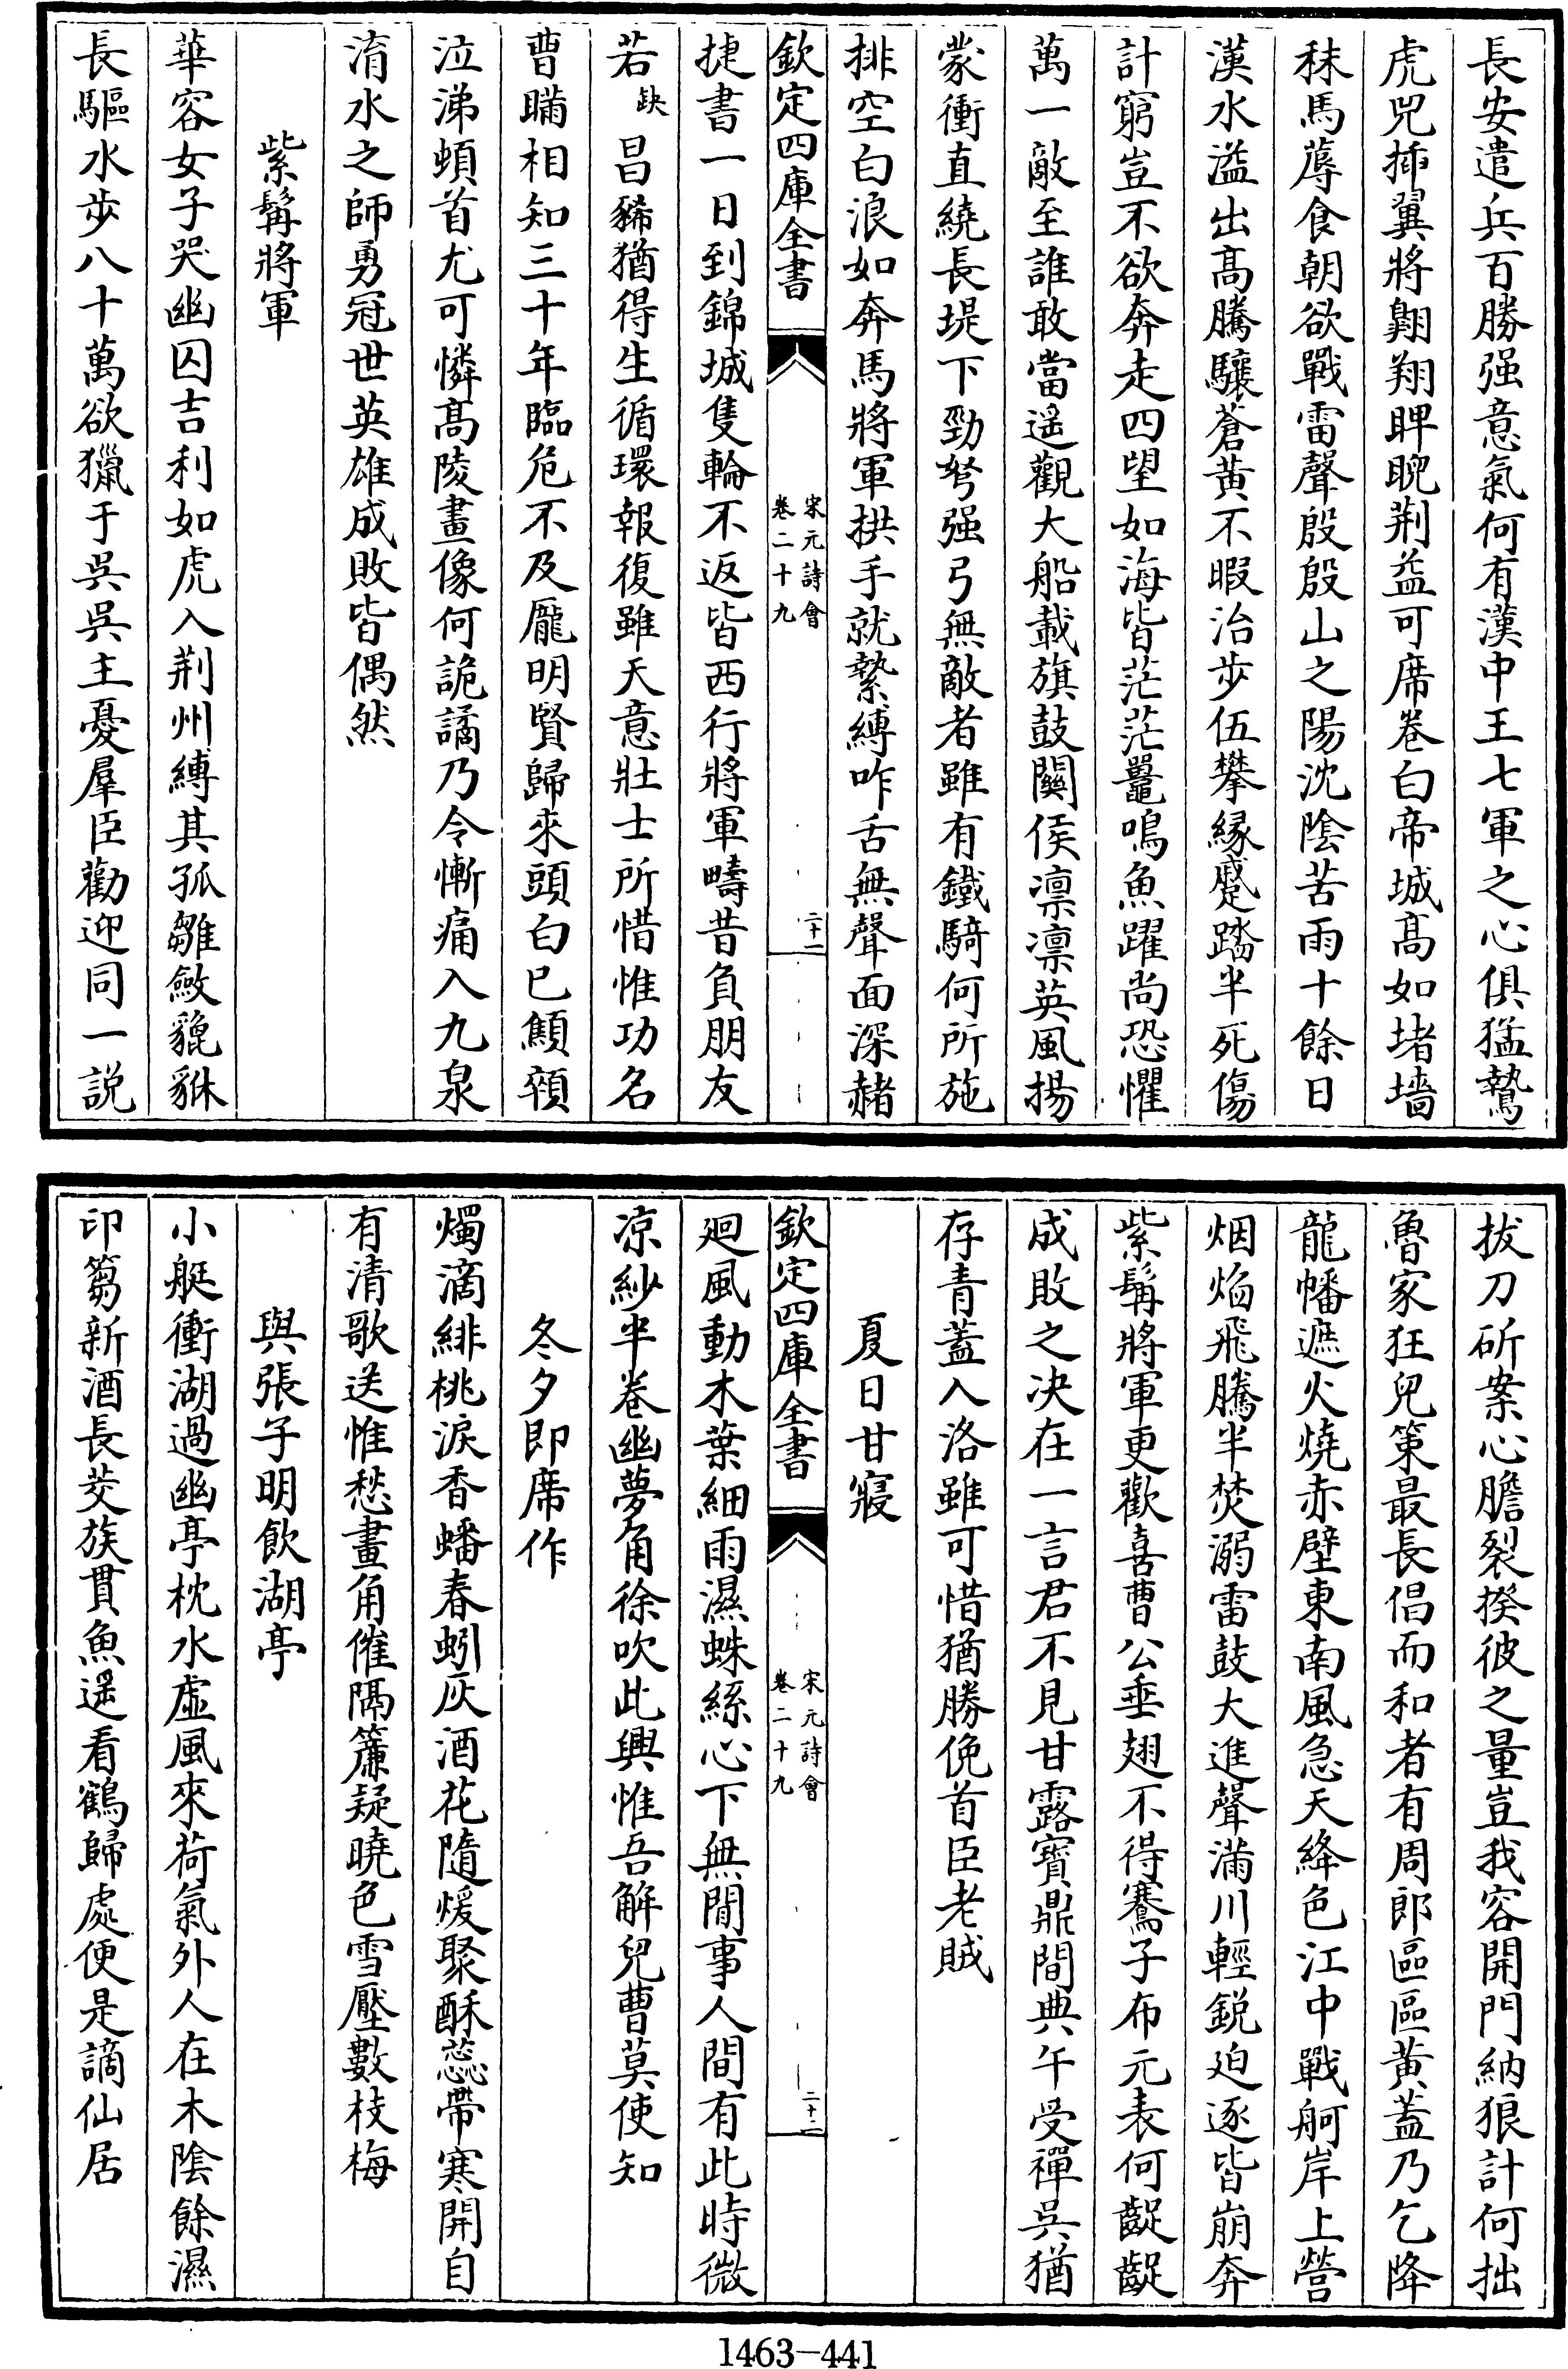 長安遣兵百勝强意氣何有漢中王七軍之心俱猛鷙
虎兕揷翼將翺翔睥睨荆益可席卷白帝城髙如堵墻
秣馬蓐食朝欲戰雷聲殷殷山之陽沈陰苦雨十餘日
漢水溢出髙騰驤蒼黄不暇治步伍攀縁蹙踏半死傷
計窮豈不欲奔走四望如海皆茫茫鼉鳴魚躍尚恐懼
萬一敵至誰敢當遥觀大船載旗鼓闗侯凛凛英風揚
蒙衝直繞長堤下勁弩强弓無敵者雖有鐵騎何所施
排空白浪如奔馬將軍拱手就縶縛咋舌無聲面深赭
欽定四庫全書
宋元詩會
卷二十九
二十一
捷書一日到錦城隻輪不返皆西行將軍疇昔負朋友
若缺昌豨猶得生循環報復雖天意壯士所惜惟功名
曹瞞相知三十年臨危不及龎明賢歸來頭白已顦顇
泣涕頓首尤可憐髙陵畫像何詭譎乃令慚痛入九泉
淯水之師勇冠世英雄成敗皆偶然
紫髯將軍
華容女子哭幽囚吉利如虎入荆州縛其孤雛斂貔貅
長驅水步八十萬欲獵于吳吳主憂羣臣勸迎同一説
拔刀斫案心膽裂揆彼之量豈我容開門納狼計何拙
魯家狂兒策最長倡而和者有周郎區區黄蓋乃乞降
龍幡遮火燒赤壁東南風急天絳色江中戰舸岸上營
烟焰飛騰半焚溺雷鼓大進聲滿川輕鋭迫逐皆崩奔
紫髯將軍更歡喜曹公垂翅不得騫子布元表何齪齪
成敗之决在一言君不見甘露寳鼎間典午受禪吳猶
存青蓋入洛雖可惜猶勝俛首臣老賊
夏日甘寢
欽定四庫全書
宋元詩會
卷二十九
二十二
廻風動木葉細雨濕蛛絲心下無閒事人間有此時微
凉紗半卷幽夢角徐吹此興惟吾解兒曹莫使知
冬夕即席作
燭滴緋桃淚香蟠春蚓灰酒花隨煖聚酥蕊帶寒開自
有清歌送惟愁畫角催隔簾疑曉色雪壓數枝梅
與張子明飲湖亭
小艇衝湖過幽亭枕水虚風來荷氣外人在木陰餘濕
印蒭新酒長茭族貫魚遥看鶴歸處便是謫仙居
1463-441